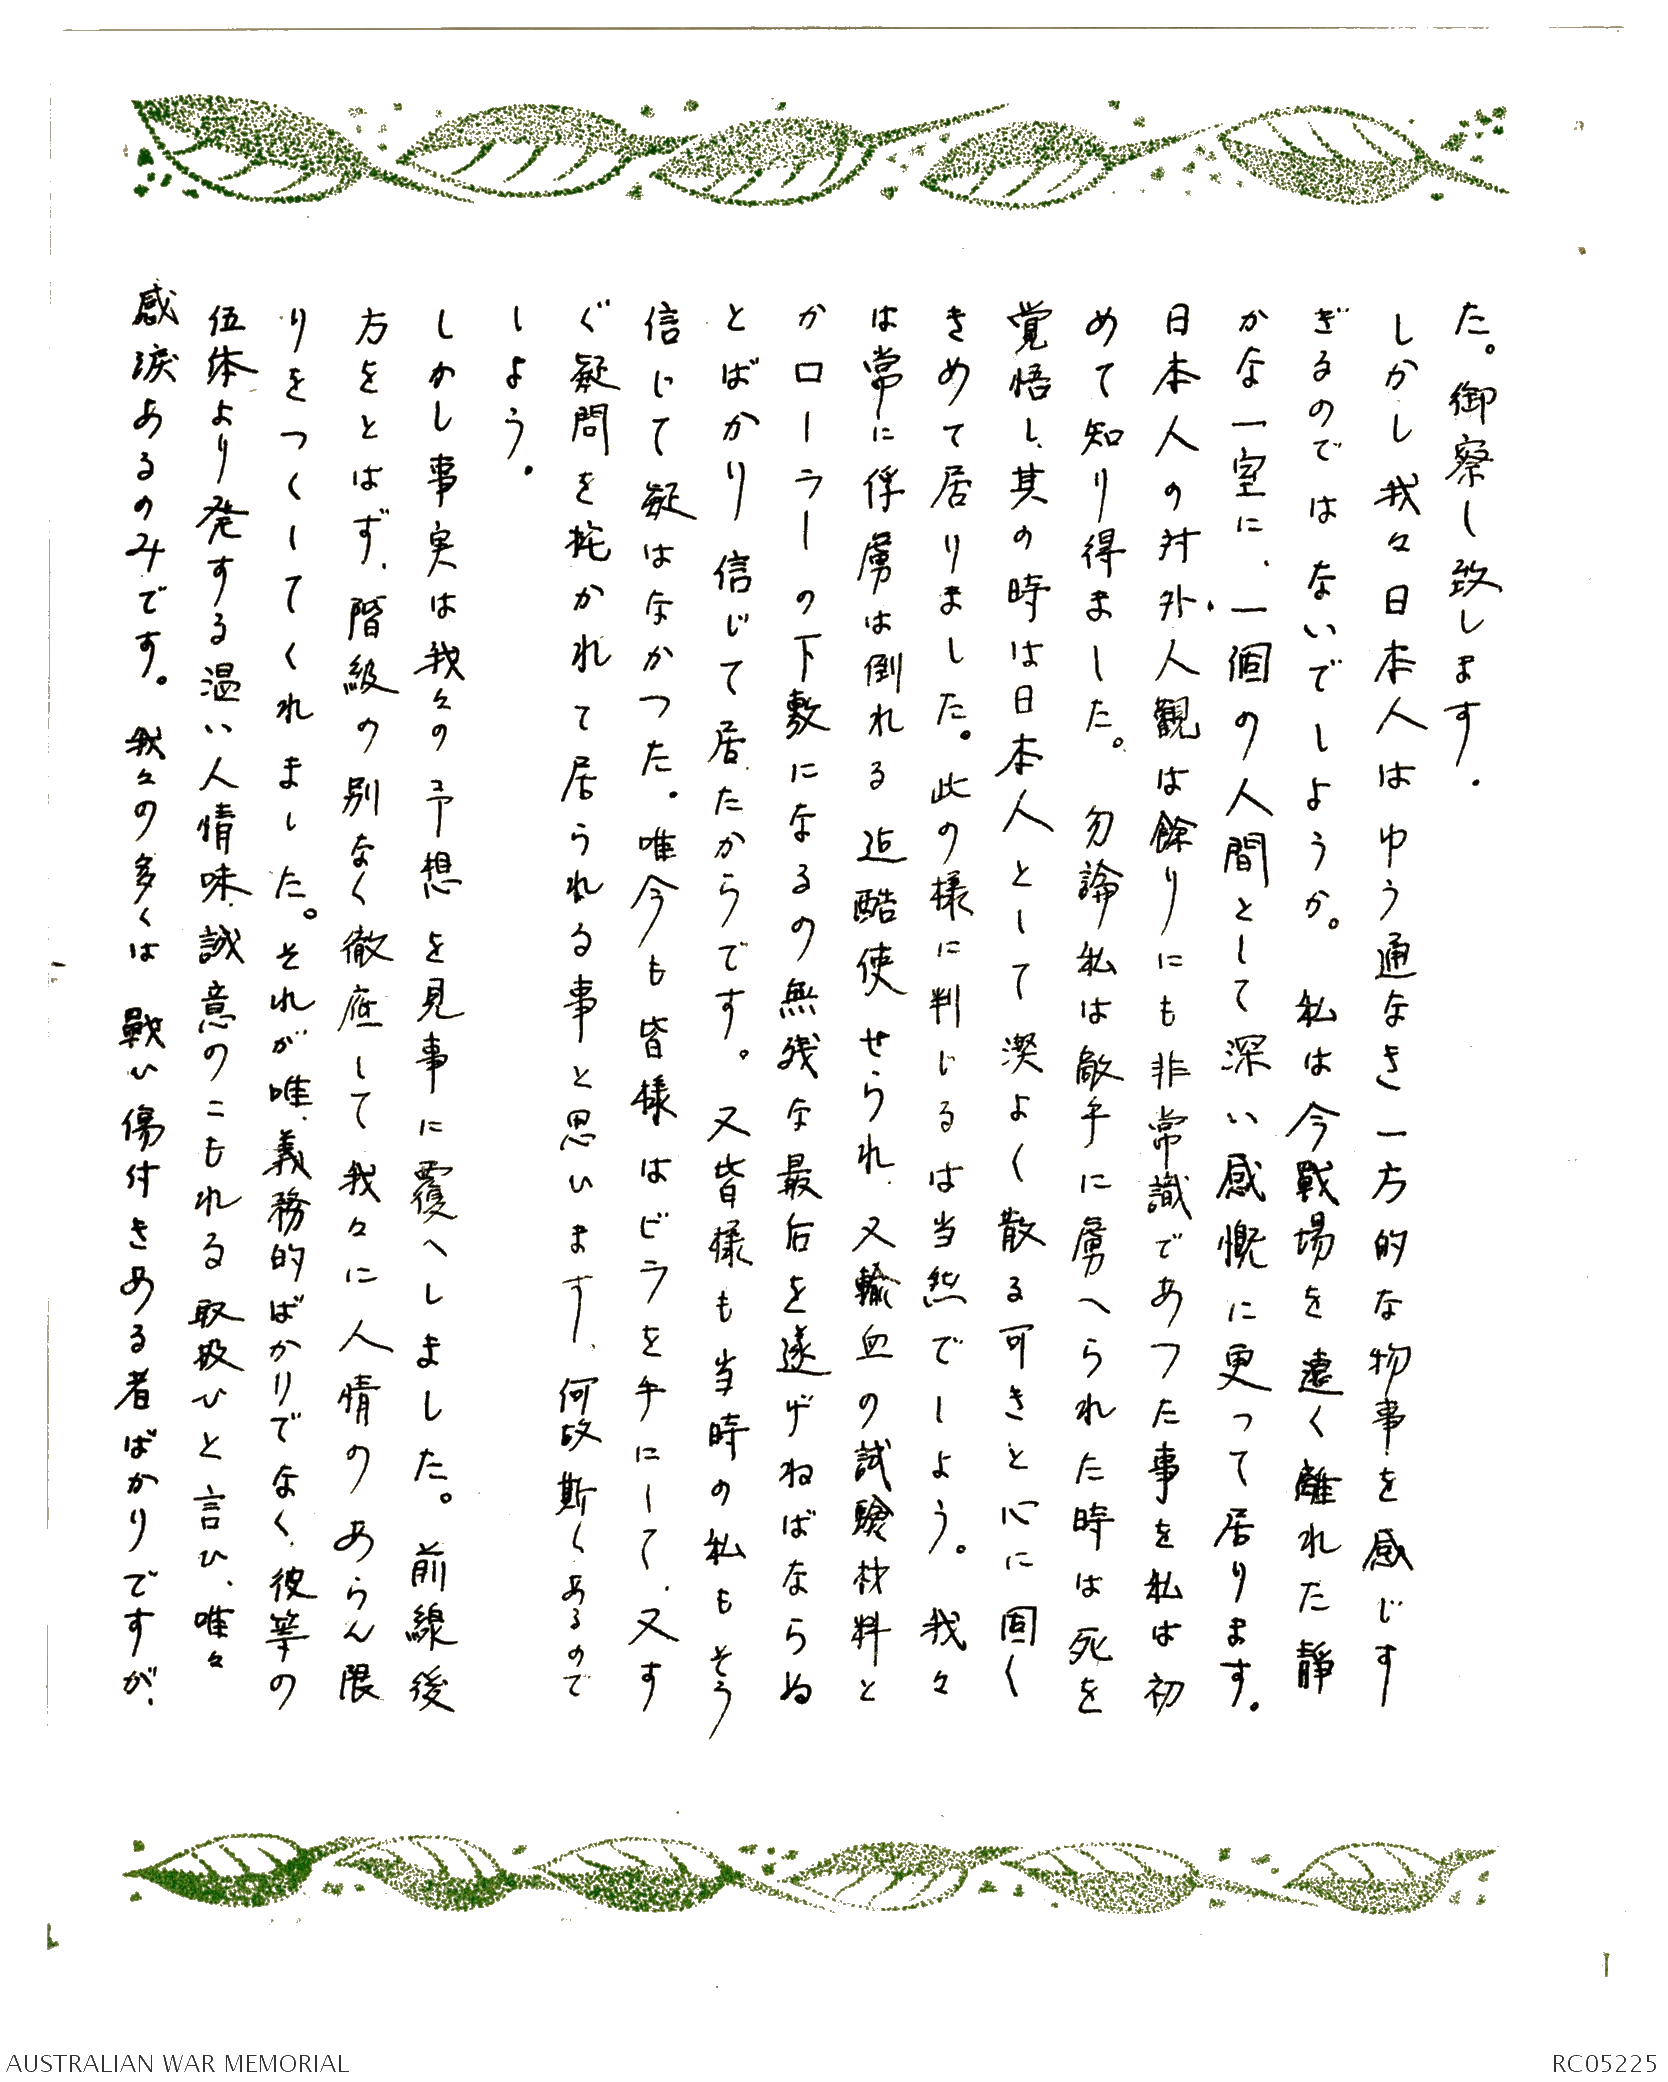 た。御察し致します.
しかし我々日本人はゆう通なき一方的な物事を感じす
ぎるのではないでしようか。私は今戦場を遠く離れた静
かな一室に、一個の人間として深い感慨に更って居ります。
日本人の対外人観は餘りにも非常識であつた事を私は初
めて知り得ました。勿論私は敵手に虜へられた時は死を
覚悟し、其の時は日本人として潔よく散る可きと心に固く
きめて居りました。此の様に判じるは当然でしよう。我々
は常に俘虜は倒れる迄酷使せられ、又輸血の試験材料と
かローラーの下敷になるの無残な最后を遂げねばならぬ
とばかり信じて居たからです。又皆様も当時の私もそう
信じて疑はなかつた.唯今も皆様はビラを手にして、又す
ぐ疑問を抱かれて居られる事と思います、何故斯くあるので
しよう.
しかし事実は我々の予想を見事に覆へしました。前線後
方をとはず、階級の別なく徹底して我々に人情のあらん限
りをつくしてくれました。それが唯、義務的ばかりでなく、彼等の
伍体より発する温い人情味、誠意のこもれる取扱ひと言ひ、唯々
感涙あるのみです。我々の多くは戰い傷付きある者ばかりですが、
AUSTRALIAN WAR MEMORIAL
RC05225